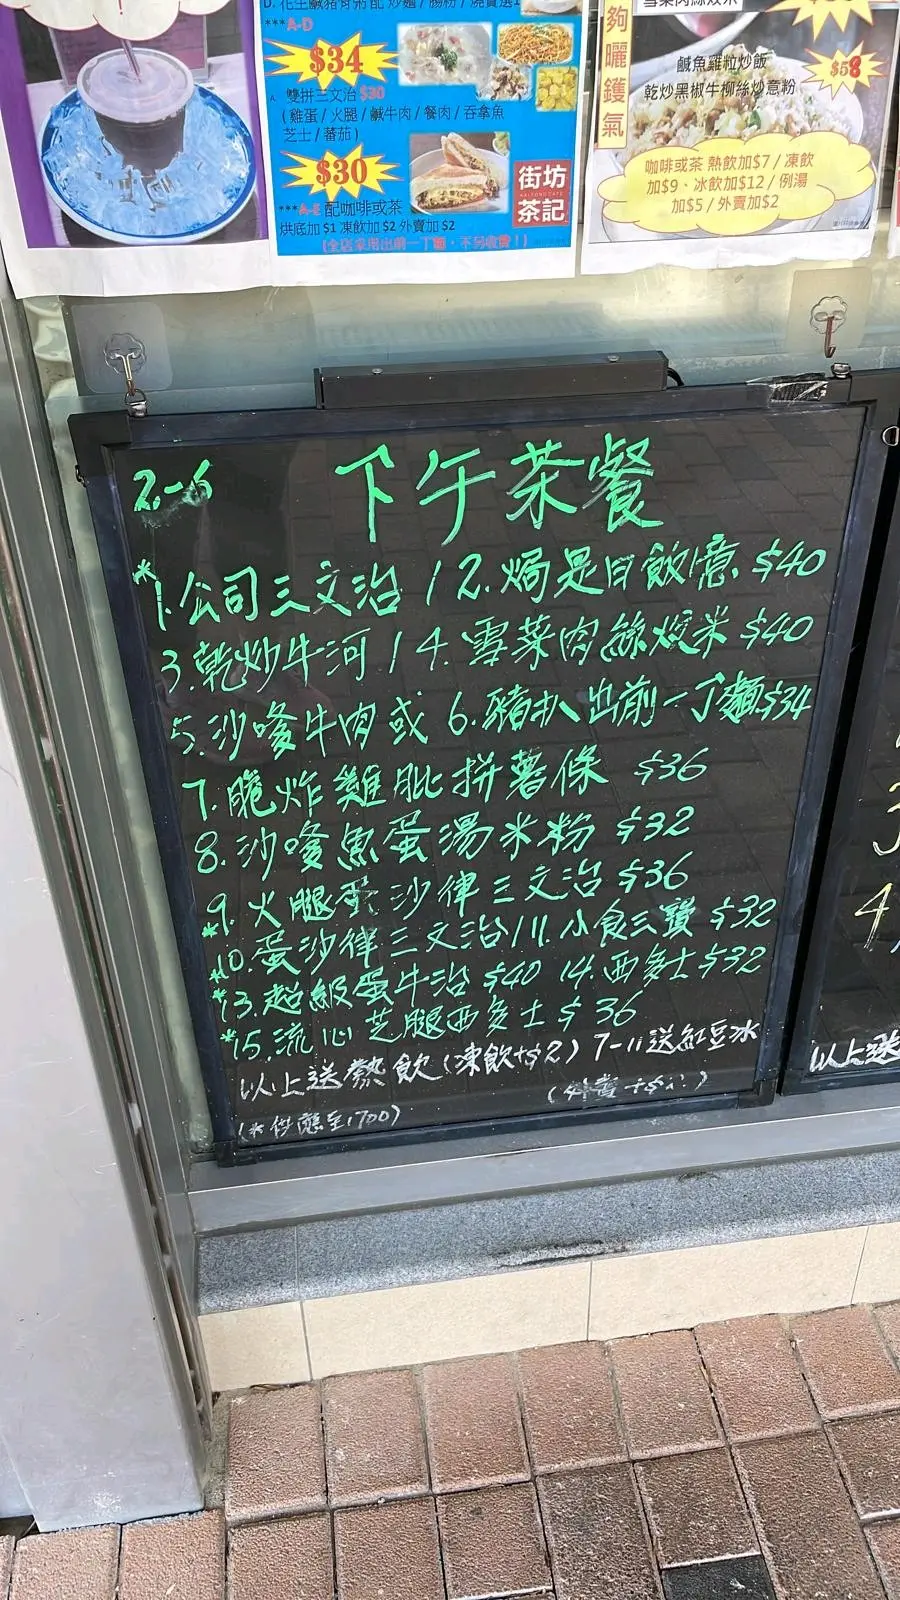 D. 花生鹹豬骨粥配 炒麵 / 腸粉 / 燒賣選1
***A-D
$34
A. 雙拼三文治 $30
(雞蛋 / 火腿 / 鹹牛肉 / 餐肉 / 吞拿魚
芝士 / 蕃茄)
$30
***A-E 配咖啡或茶
烘底加 $1 凍飲加 $2 外賣加 $2
(全店采用出前一丁麵，不另收費!)
街坊
茶記
夠曬鑊氣
鹹魚雞粒炒飯
乾炒黑椒牛柳絲炒意粉
$58
咖啡或茶 熱飲加$7 / 凍飲
加$9、冰飲加$12 / 例湯
加$5 / 外賣加$2
2-6 下午茶餐
*1.公司三文治 / 2.焗是日飯 $40
3.乾炒牛河 / 4.雪菜肉絲炆米 $40
5.沙嗲牛肉或 6.豬扒出前一丁麵 $34
7.脆炸雞肶拼薯條 $36
8.沙嗲魚蛋湯米粉 $32
*9.火腿蛋沙律三文治 $36
*10.蛋沙律三文治 / 11.小食三寶 $32
*13.超級蛋牛治 $40 14.西多士 $32
*15.流心芝腿西多士 $36
以上送熱飲(凍飲+$2) 7-11送紅豆冰
(外賣+$2)
(*供應至1700)
4
以上送